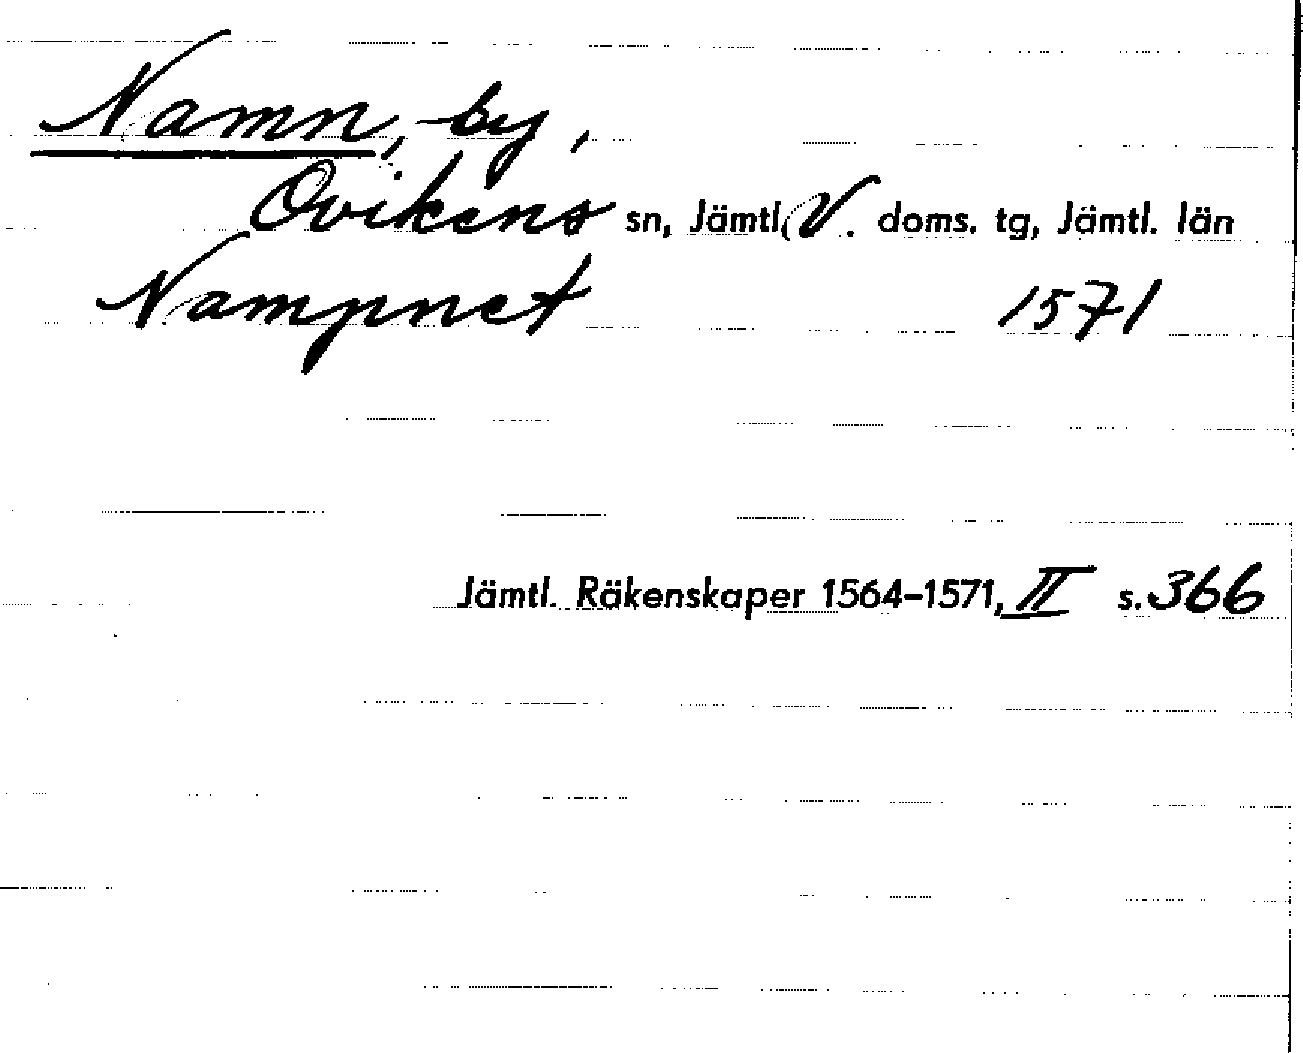 Namn, by,
Ovikens sn, Jämtl. V. doms. tg, Jämtl. län
Nampnet 1571
Jämtl. Räkenskaper 1564-1571, II s. 366